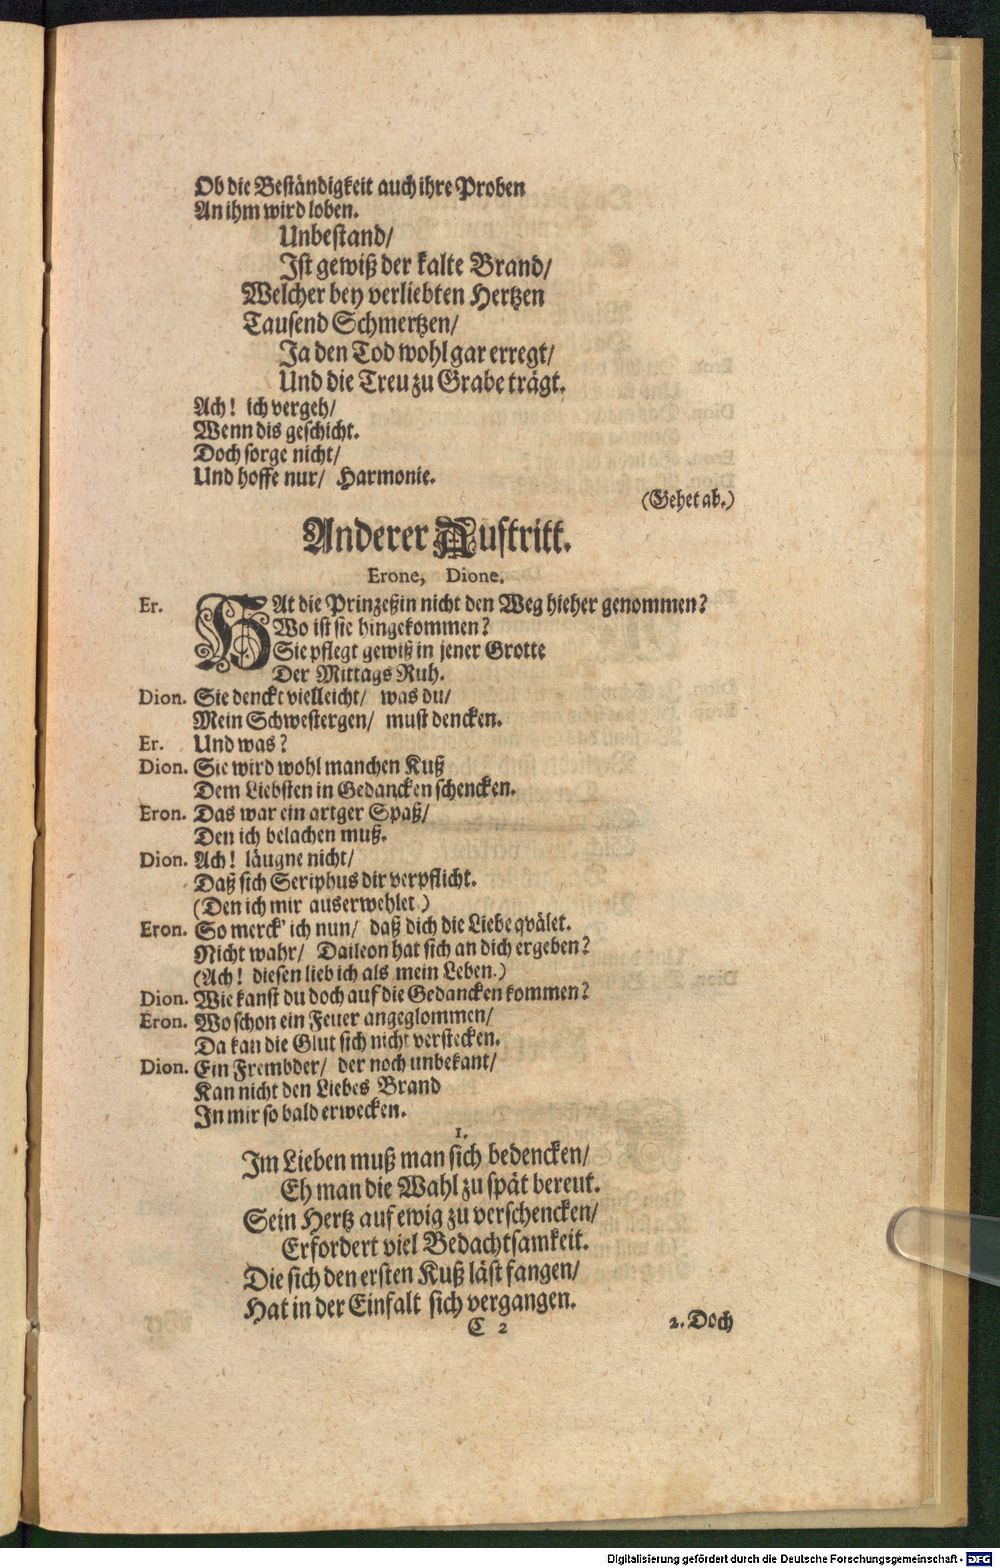 Ob die Beständigkeit auch ihre Proben
An ihm wird loben.
Unbestand/
Ist gewiß der kalte Brand/
Welcher bey verliebten Hertzen
Tausend Schmertzen/
Ja den Tod wohl gar erregt/
Und die Treu zu Grabe trägt.
Ach! ich vergeh/
Wenn dis geschicht.
Doch sorge nicht/
Und hoffe nur/ Harmonie.
(Gehet ab.)
Anderer Auftritt.
Erone, Dione.
Er. HAt die Prinzeßin nicht den Weg hieher genommen?
Wo ist sie hingekommen?
Sie pflegt gewiß in jener Grotte
Der Mittags Ruh.
Dion. Sie denckt vielleicht/ was du/
Mein Schwestergen/ must dencken.
Er. Und was?
Dion. Sie wird wohl manchen Kuß
Dem Liebsten in Gedancken schencken.
Eron. Das war ein artger Spaß/
Den ich belachen muß.
Dion. Ach! läugne nicht/
Daß sich Seriphus dir verpflicht.
(Den ich mir auserwehlet.)
Eron. So merck' ich nun/ daß dich die Liebe qvälet.
Nicht wahr/ Daileon hat sich an dich ergeben?
(Ach! diesen lieb ich als mein Leben.)
Dion. Wie kanst du doch auf die Gedancken kommen?
Eron. Wo schon ein Feuer angeglommen/
Da kan die Glut sich nicht verstecken.
Dion. Ein Frembder/ der noch unbekant/
Kan nicht den Liebes Brand
In mir so bald erwecken.
1.
Im Lieben muß man sich bedencken/
Eh man die Wahl zu spät bereut.
Sein Hertz auf ewig zu verschencken/
Erfordert viel Bedachtsamkeit.
Die sich den ersten Kuß läst fangen/
Hat in der Einfalt sich vergangen.
C 2 2. Doch
Digitalisierung gefördert durch die Deutsche Forschungsgemeinschaft - DFG